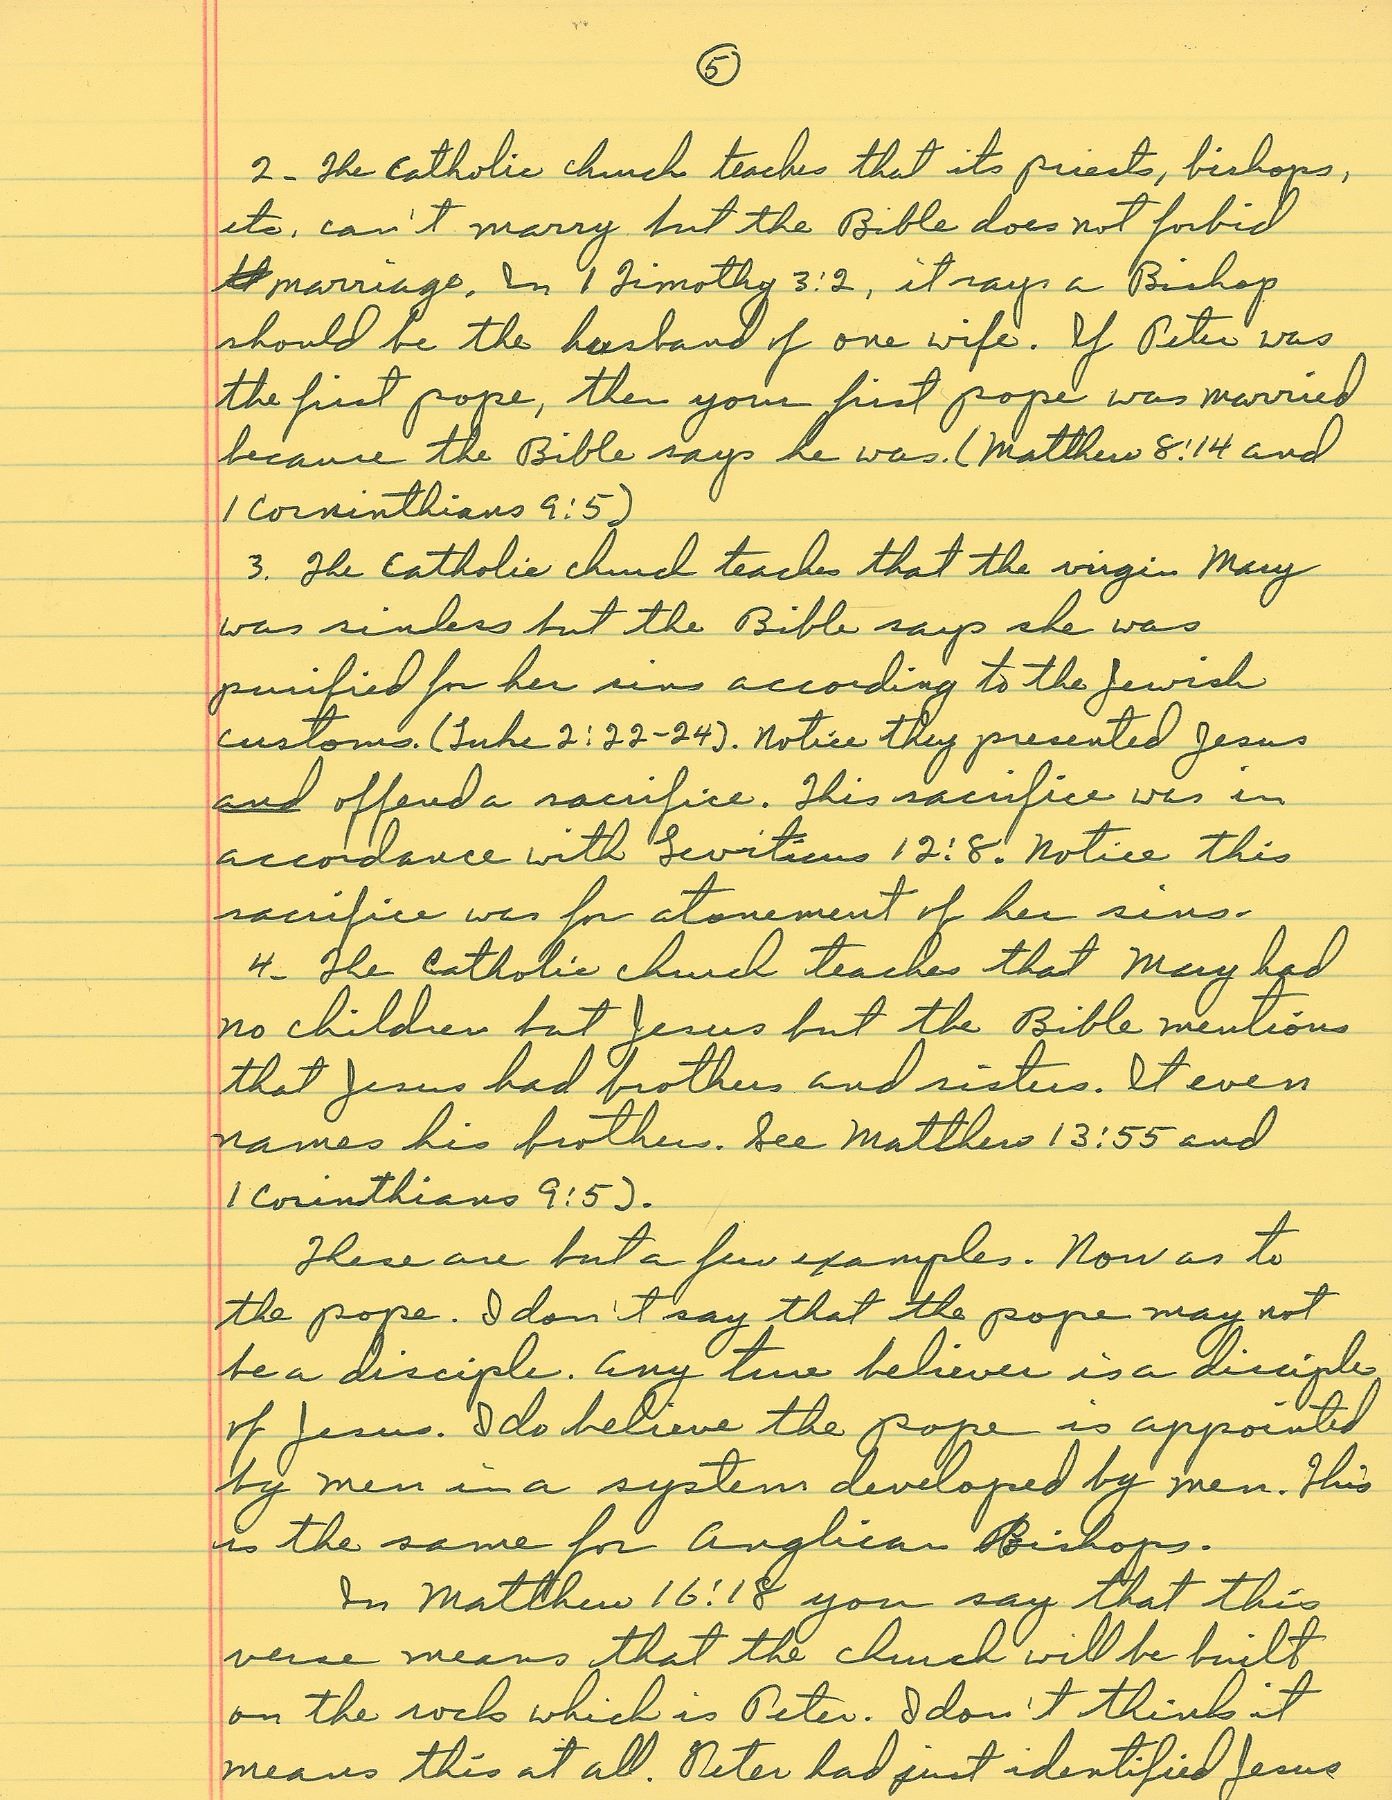 5
2 - The Catholic church teaches that its priests, bishops,
etc. can't marry but the Bible does not forbid
marriage. In 1 Timothy 3:2, it says a Bishop
should be the husband of one wife. If Peter was
the first pope, then your first pope was married
because the Bible says he was. (Matthew 8:14 and
1 Corninthians 9:5)
3. The Catholic church teaches that the virgin Mary
was sinless but the Bible says she was
purified for her sins according to the Jewish
customs. (Luke 2:22-24). Notice they presented Jesus
and offered a sacrifice. This sacrifice was in
accordance with Leviticus 12:8. Notice this
sacrifice was for atonement of her sins.
4 - The Catholic church teaches that Mary had
no children but Jesus but the Bible mentions
that Jesus had brothers and sisters. It even
names his brothers. See Matthew 13:55 and
1 Corinthians 9:5).
These are but a few examples. Now as to
the pope. I don't say that the pope may not
be a disciple. Any true believer is a disciple
of Jesus. I do believe the pope is appointed
by men in a system developed by men. This
is the same for Anglican Bishops.
In Matthew 16:18 you say that this
verse means that the church will be built
on the rock which is Peter. I don't think it
means this at all. Peter had just identified Jesus